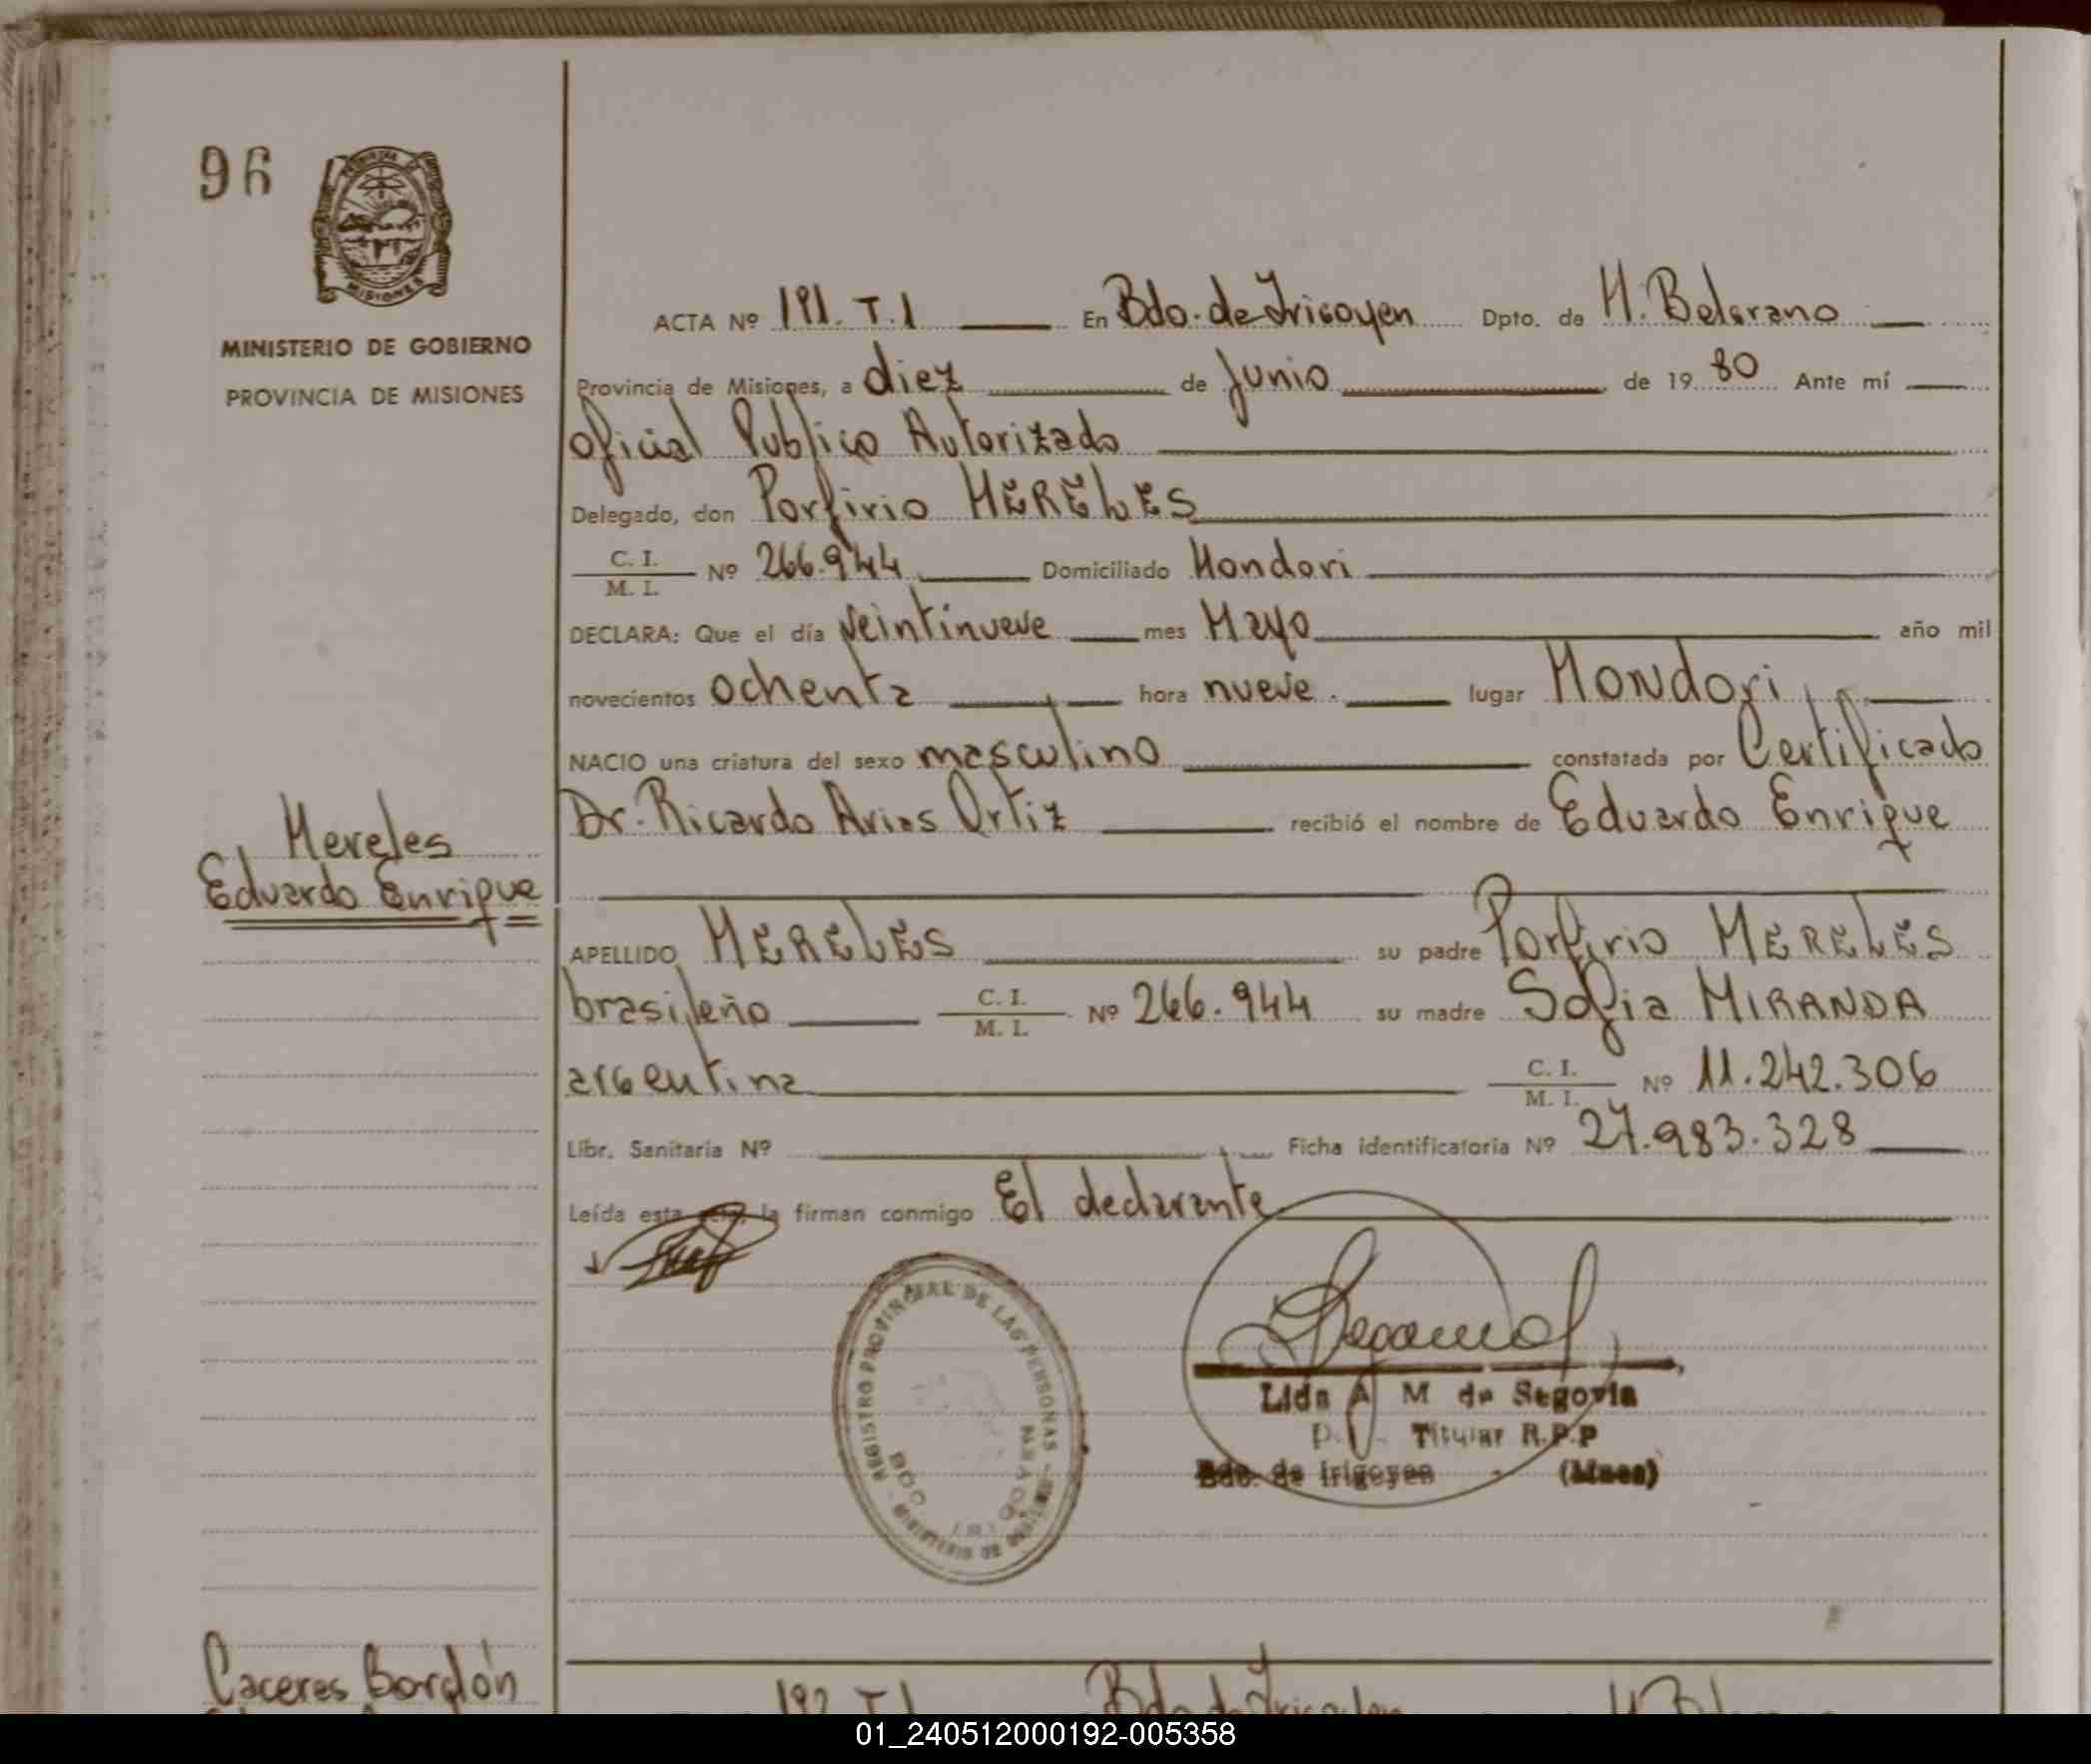 96
MISIONES
MINISTERIO DE GOBIERNO
PROVINCIA DE MISIONES
ACTA Nº 191. T.1 En Bdo. de Irigoyen Dpto. de M. Belgrano
Provincia de Misiones, a diez de Junio de 1980 Ante mí
Oficial Publico Autorizado
Delegado, don Porfirio MERELES
C. I. / M. I. Nº 266.944 Domiciliado Mondori
DECLARA: Que el día veintinueve mes Mayo año mil
novecientos ochenta hora nueve. lugar Mondori
NACIO una criatura del sexo masculino constatada por Certificado
Dr. Ricardo Arias Ortiz recibió el nombre de Eduardo Enrique
Mereles
Eduardo Enrique
APELLIDO MERELES su padre Porfirio MERELES
brasileño C. I. / M. I. Nº 266.944 su madre Sofia MIRANDA
argentina C. I. / M. I. Nº 11.242.306
Libr. Sanitaria Nº Ficha identificatoria Nº 27.983.328
Leída esta la firman conmigo El declarante
REGISTRO PROVINCIAL DE LAS PERSONAS
Lida A M de Segovia
Titular R.P.P
Bdo. de Irigoyen - (Mnes)
Caceres Bordón
192 T.1 Bdo de Irigoyen
01_240512000192-005358